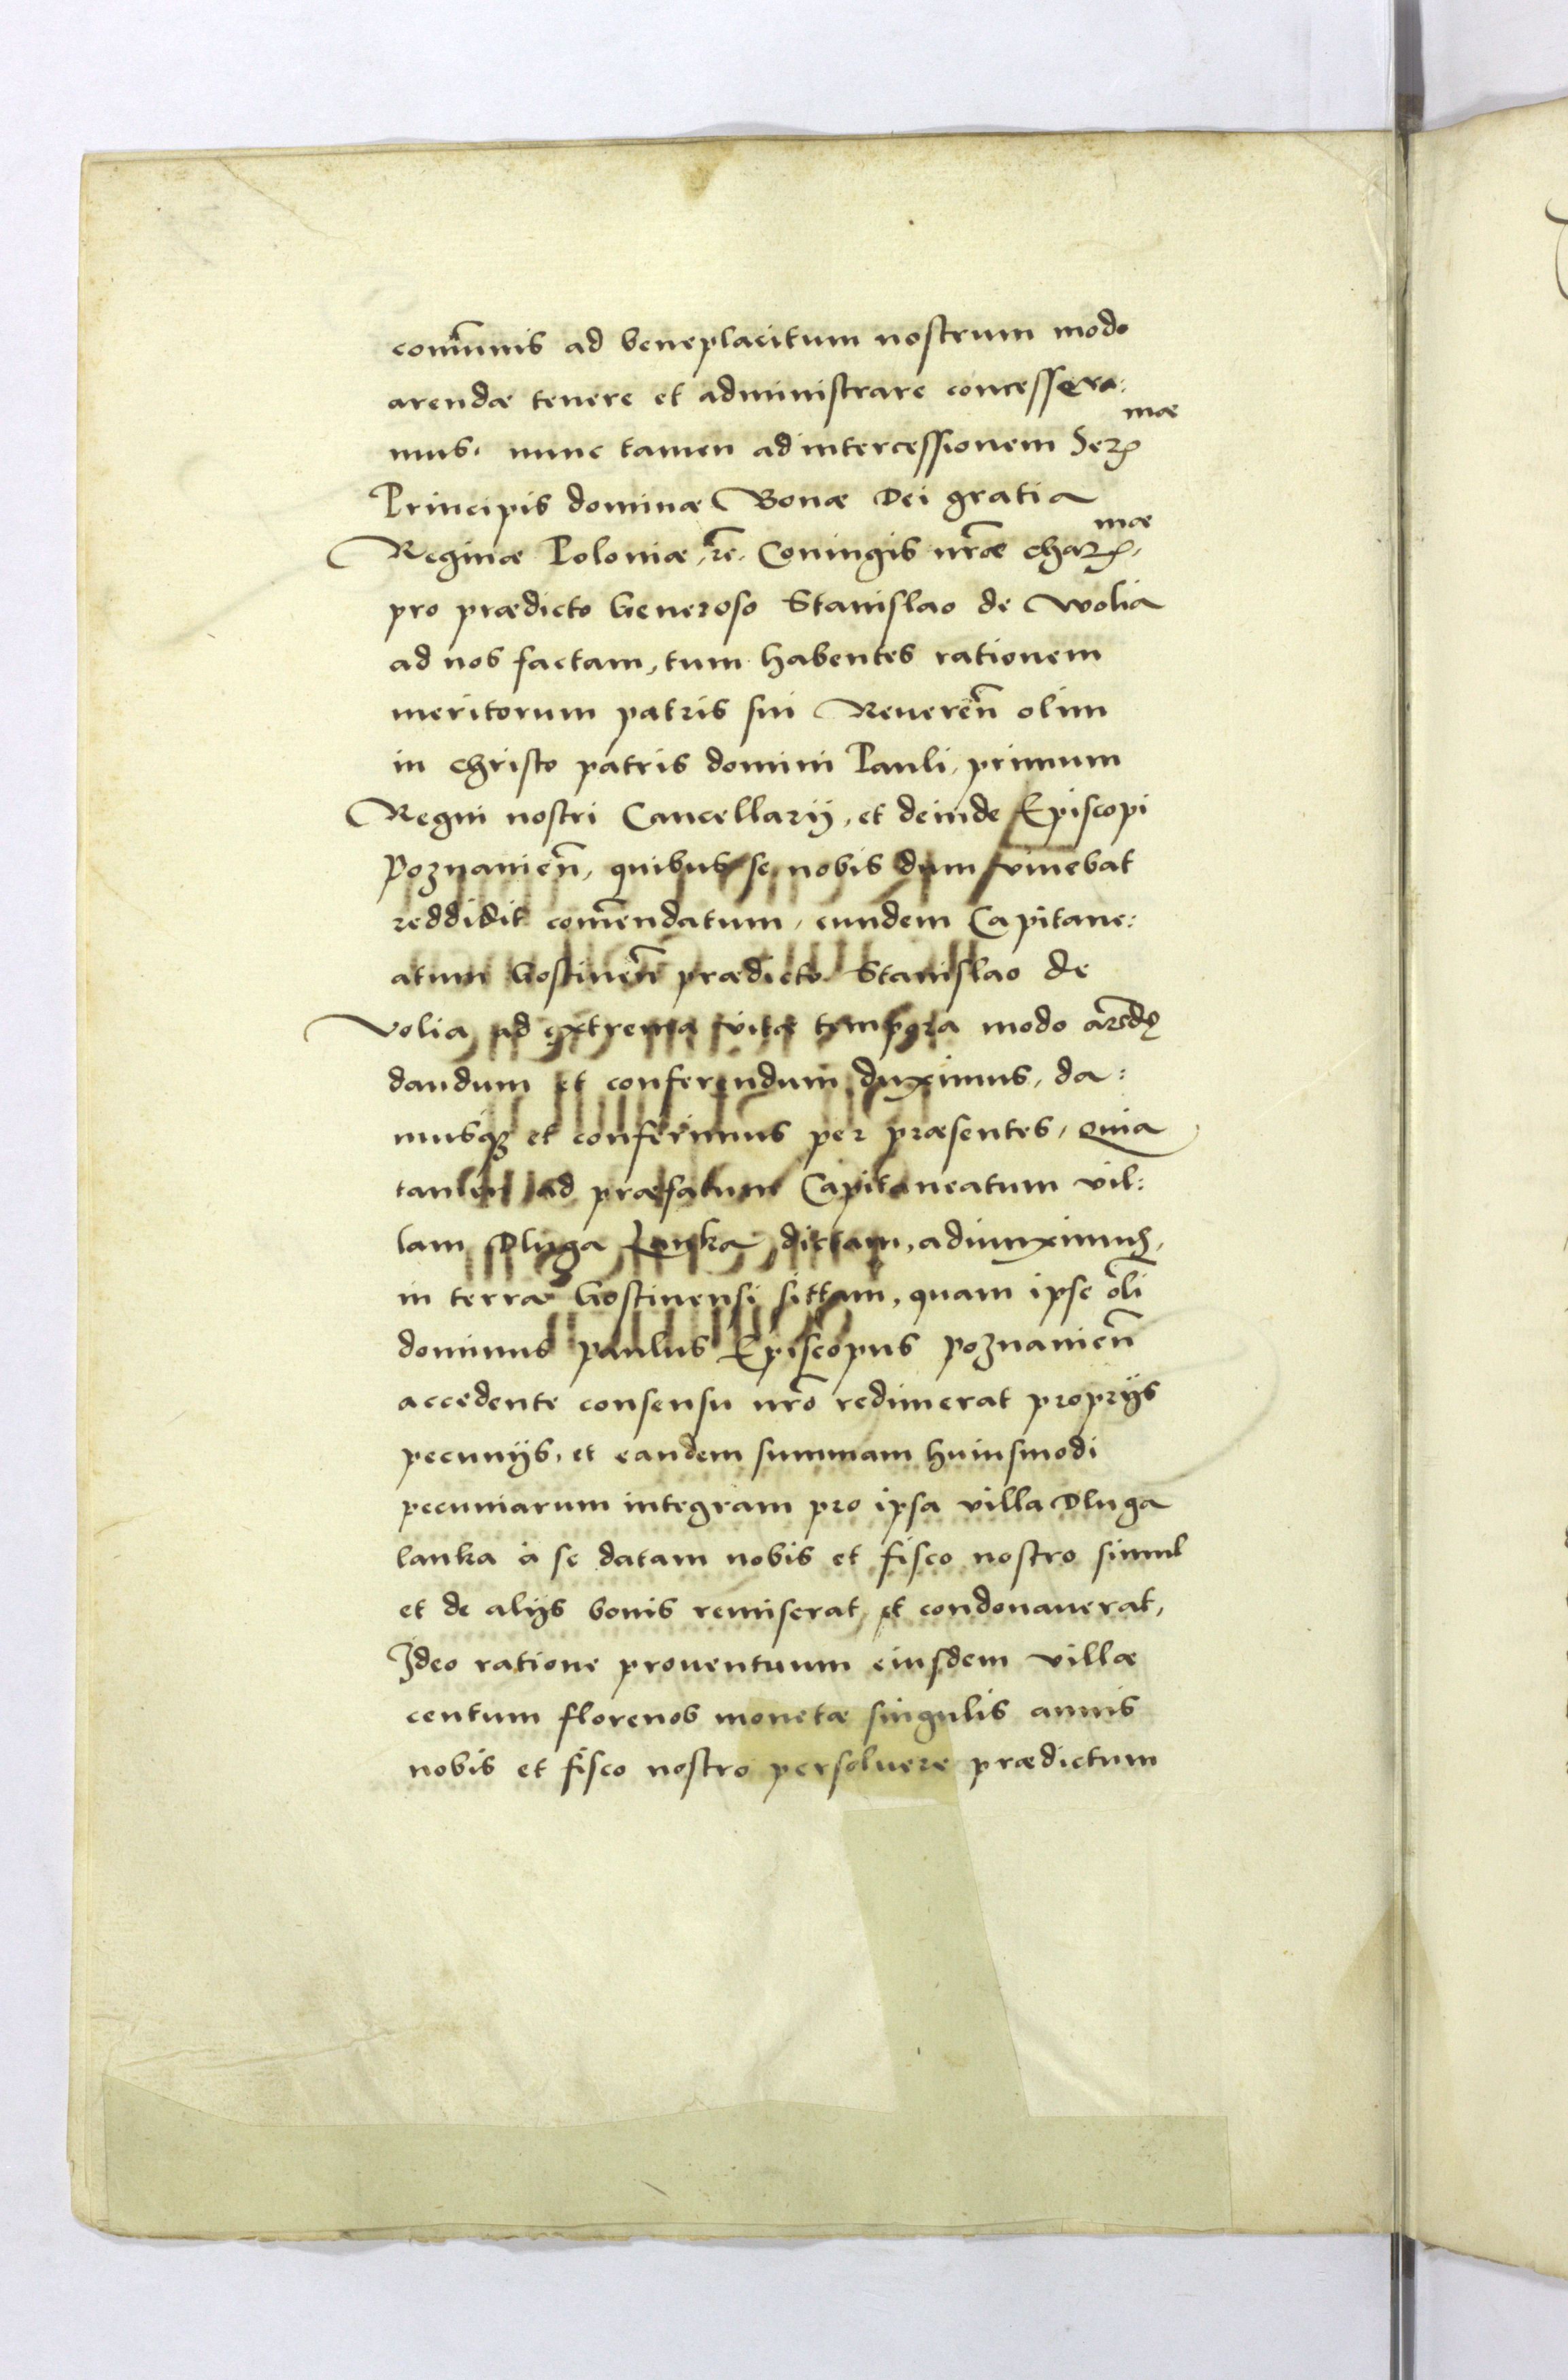 com̄unis ad beneplacitum nostrum modo
arendæ tenere et administrare concessera:
mus. nunc tamen ad intercessionem Ser̄ mæ
Principis dominæ Bonæ Dei gratia
Reginæ Poloniæ, etc. Coniugis nr̄æ char̄ mæ,
pro prædicto Generoso Stanislao de Wolia
ad nos factam, tum habentes rationem
meritorum patris sui Reueren̄ olim
in Christo patris domini Pauli, primum
Regni nostri Cancellarij, et deinde Episcopi
Poznanien̄, quibus se nobis dum viuebat
reddidit com̄endatum, eundem Capitane:
atum Gostinen̄ prædicto Stanislao de
Volia ad extrema vitæ tempora modo arēdę
dandum et conferendum duximus, da:
musq₃ et conferimus per præsentes, quia
tamen ad præfatum Capitaneatum vil:
lam Dluga Lanka dictam, adiunximus,
in terra Gostinensi sittam, quam ipse oli̅
dominus Paulus Episcopus Poznanien̄
accedente consensu nr̄o redimerat proprijs
pecunijs, et eandem summam huiusmodi
pecuniarum integram pro ipsa villa Dluga
lanka à se datam nobis et fisco nostro simul
et de alijs bonis remiserat et condonauerat,
Ideo ratione prouentuum eiusdem villæ
centum florenos monetæ singulis annis
nobis et fisco nostro persoluere prædictum